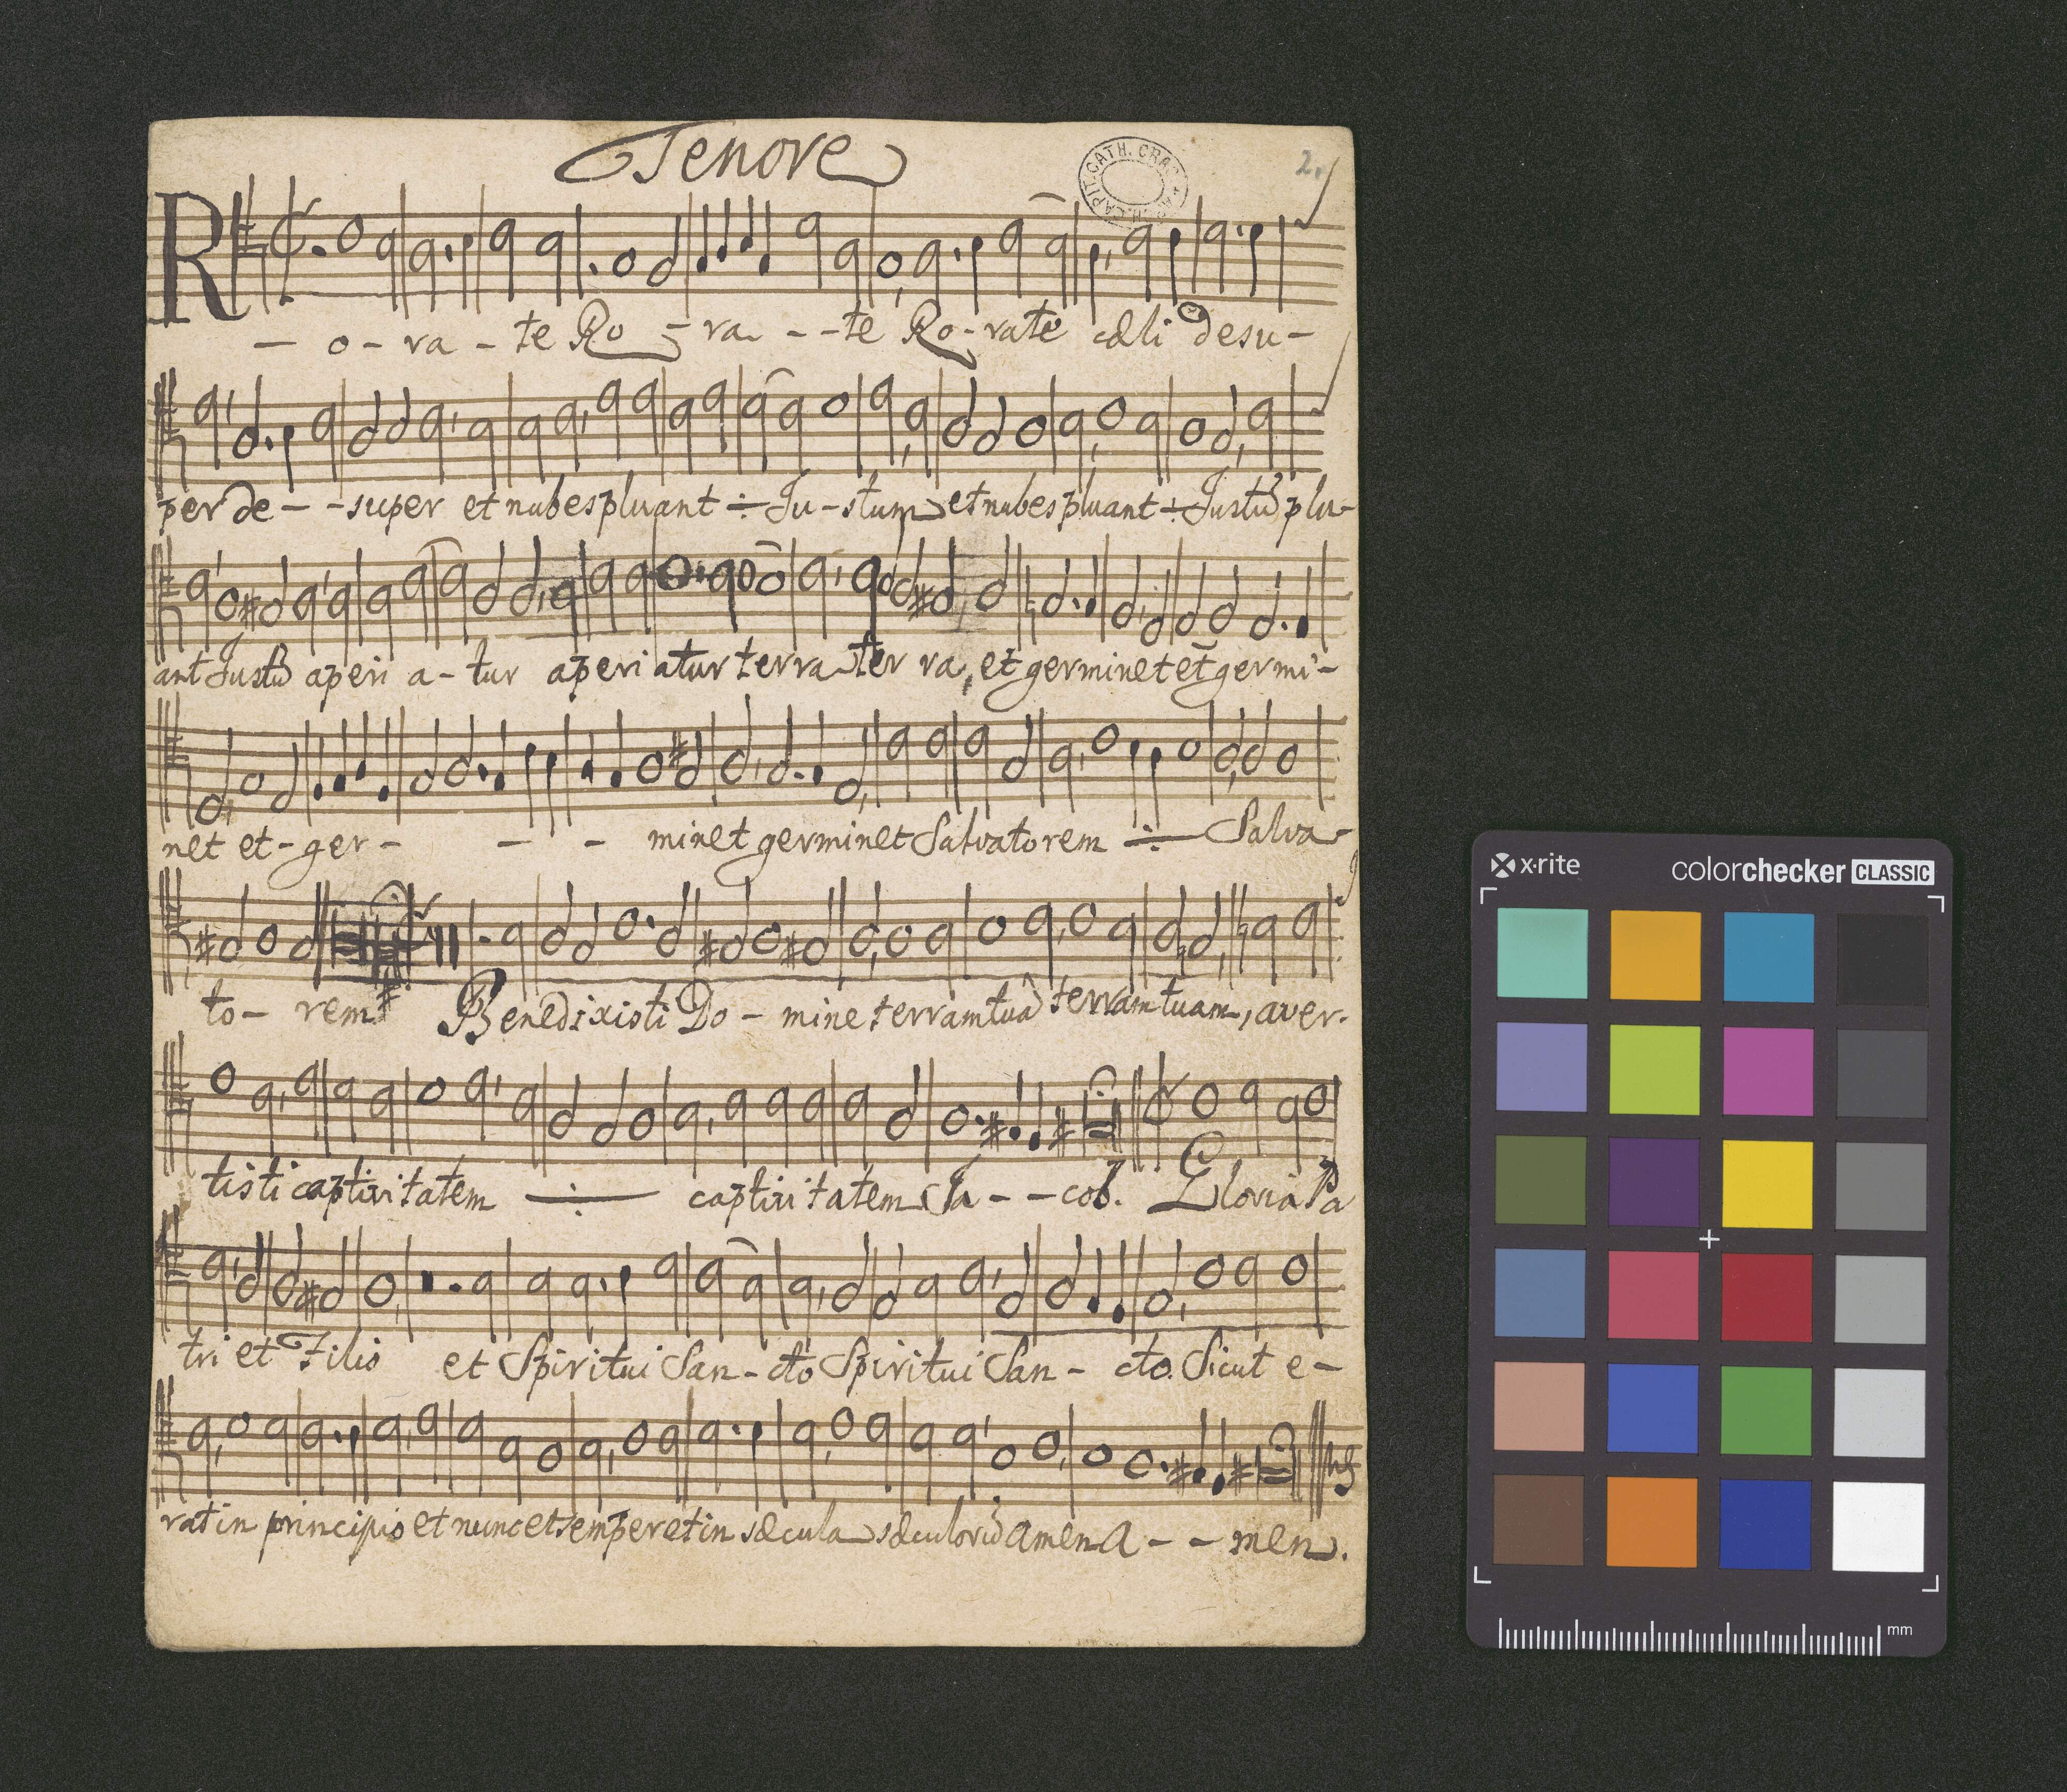 Tenore
2.
CAPIT. CATH. CRAC.
R
- o - ra - te Ro - ra - - te Ro - rate cæli desu -
per de - - super et nubes pluant ÷ Ju - stum et nubes pluant ÷ Justū plu -
ant Justū aperi a - tur aperi atur terra ter ra, et germinet et germi -
net et - ger - - - minet germinet Salvatorem ÷ Salva -
to - rem Benedixisti Do - mine terram tuā terram tuam, aver -
tisti captivitatem ÷ captivitatem Ja - - cob. Gloria Pa
tri et Filio et Spiritui San - cto Spiritui San - cto. Sicut e -
rat in principio et nunc et semper et in sæcula sæculorū amen A - - men.
x·rite colorchecker CLASSIC
mm